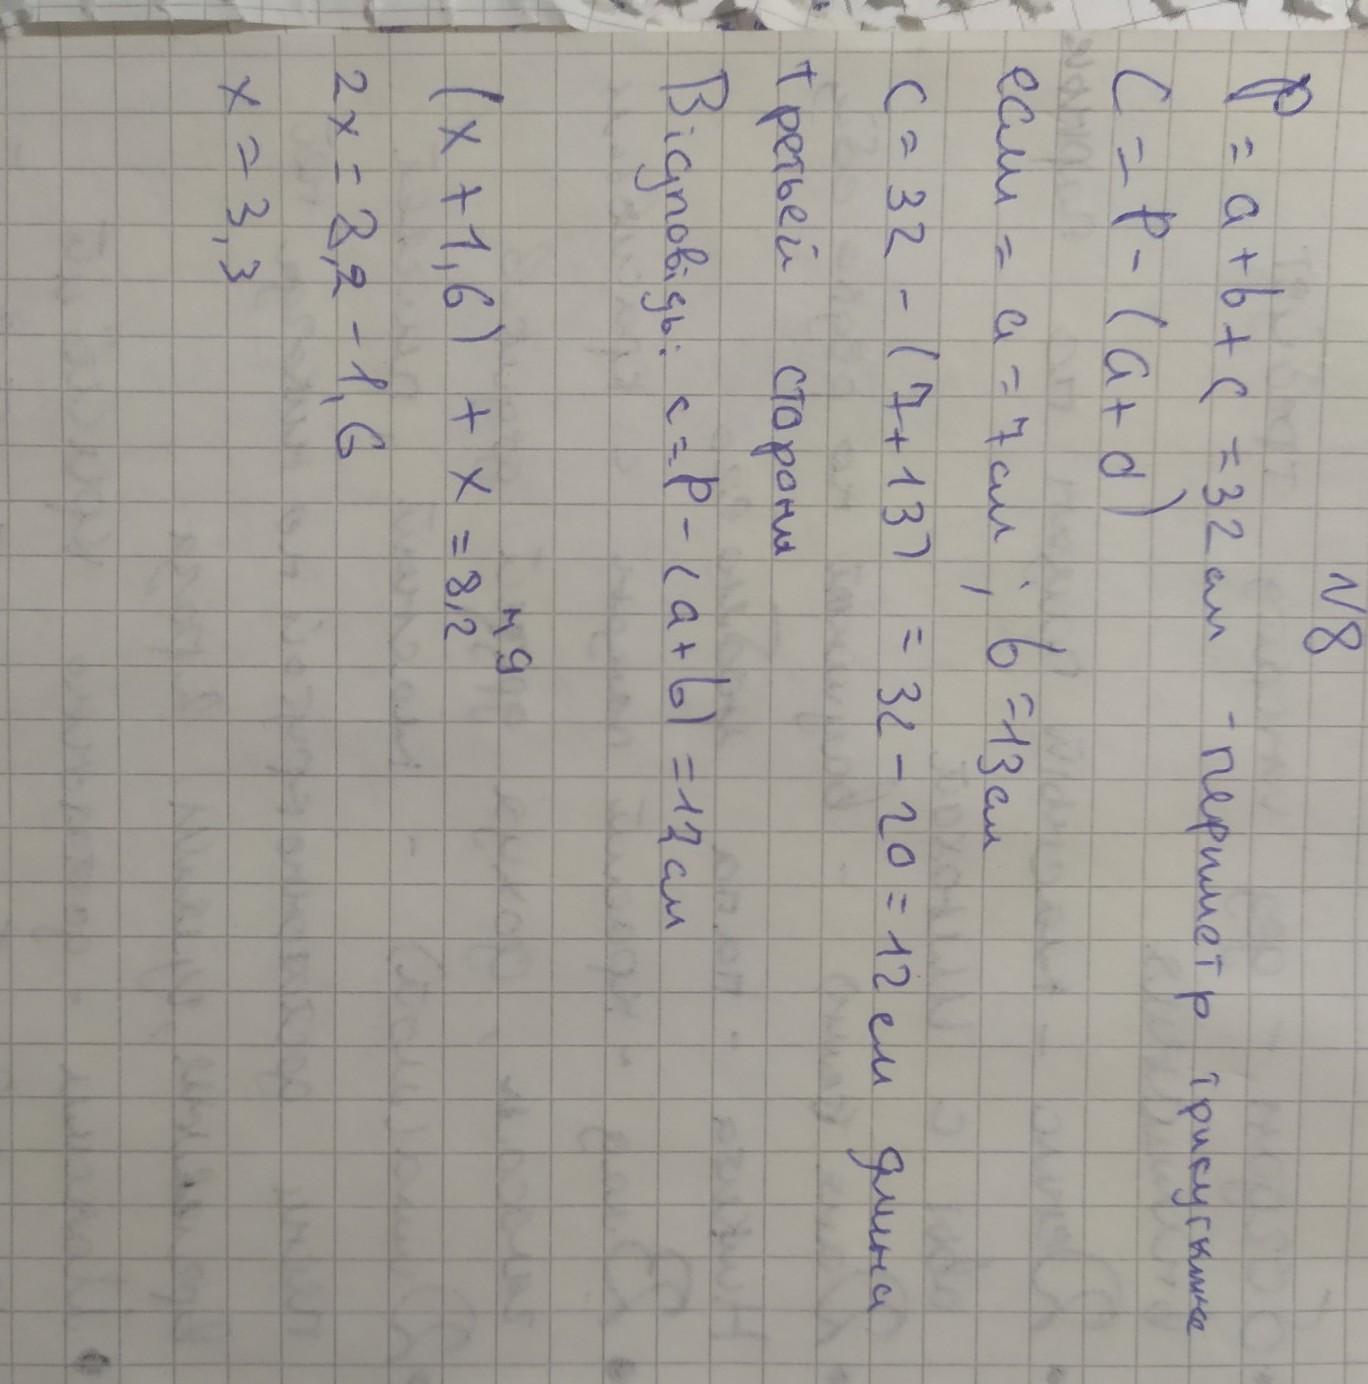 №8
P = a + b + c = 32 см - периметр трикутника
C = P - (a + d)
если = a = 7 см ; b = 13 см
c = 32 - (7 + 13) = 32 - 20 = 12 см длина
третьей сторони
Відповідь: c = P - (a + b) = 12 см
м 9
(x + 1,6) + x = 8,2
2x = 8,2 - 1,6
x = 3,3